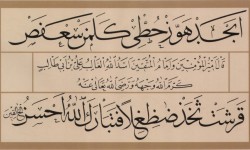 ابجد هوز حطی کلمن سعفص
قال امیر المؤمنین و امام المتقین اسد الله الغالب علی بن ابی طالب
کرم الله وجهه و رضی الله تعالی عنه
قرشت ثخذ ضظغلا فتبارك الله احسن الخالقین